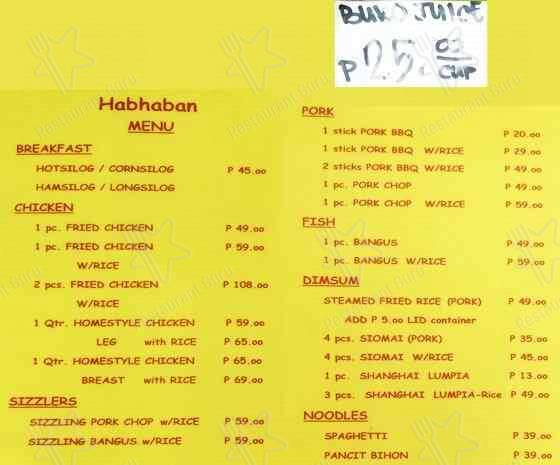 BUKO JUICE
P 25.00
CUP
Habhaban
MENU
BREAKFAST
HOTSILOG / CORNSILOG P 45.00
HAMSILOG / LONGSILOG
CHICKEN
1 pc. FRIED CHICKEN P 49.00
1 pc. FRIED CHICKEN P 59.00
W/RICE
2 pcs. FRIED CHICKEN P 108.00
W/RICE
1 Qtr. HOMESTYLE CHICKEN P 59.00
LEG with RICE P 65.00
1 Qtr. HOMESTYLE CHICKEN P 65.00
BREAST with RICE P 69.00
SIZZLERS
SIZZLING PORK CHOP w/RICE P 59.00
SIZZLING BANGUS w/RICE P 59.00
PORK
1 stick PORK BBQ P 20.00
1 stick PORK BBQ W/RICE P 29.00
2 sticks PORK BBQ W/RICE P 49.00
1 pc. PORK CHOP P 49.00
1 pc. PORK CHOP W/RICE P 59.00
FISH
1 pc. BANGUS P 49.00
1 pc. BANGUS W/RICE P 59.00
DIMSUM
STEAMED FRIED RICE (PORK) P 49.00
ADD P 5.00 LID container
4 pcs. SIOMAI (PORK) P 35.00
4 pcs. SIOMAI W/RICE P 45.00
1 pc. SHANGHAI LUMPIA P 13.00
3 pcs. SHANGHAI LUMPIA-Rice P 49.00
NOODLES
SPAGHETTI P 39.00
PANCIT BIHON P 39.00